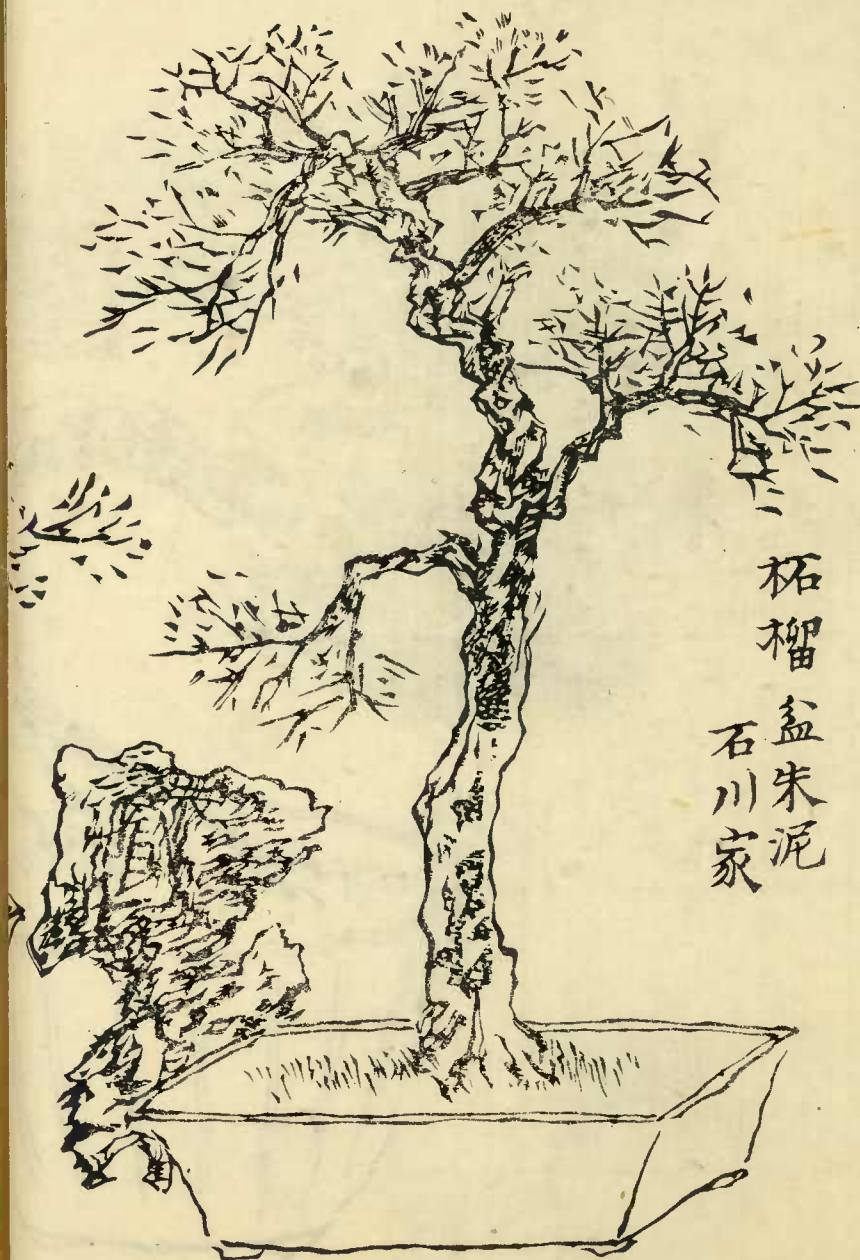 柘榴 盆朱泥
石川家